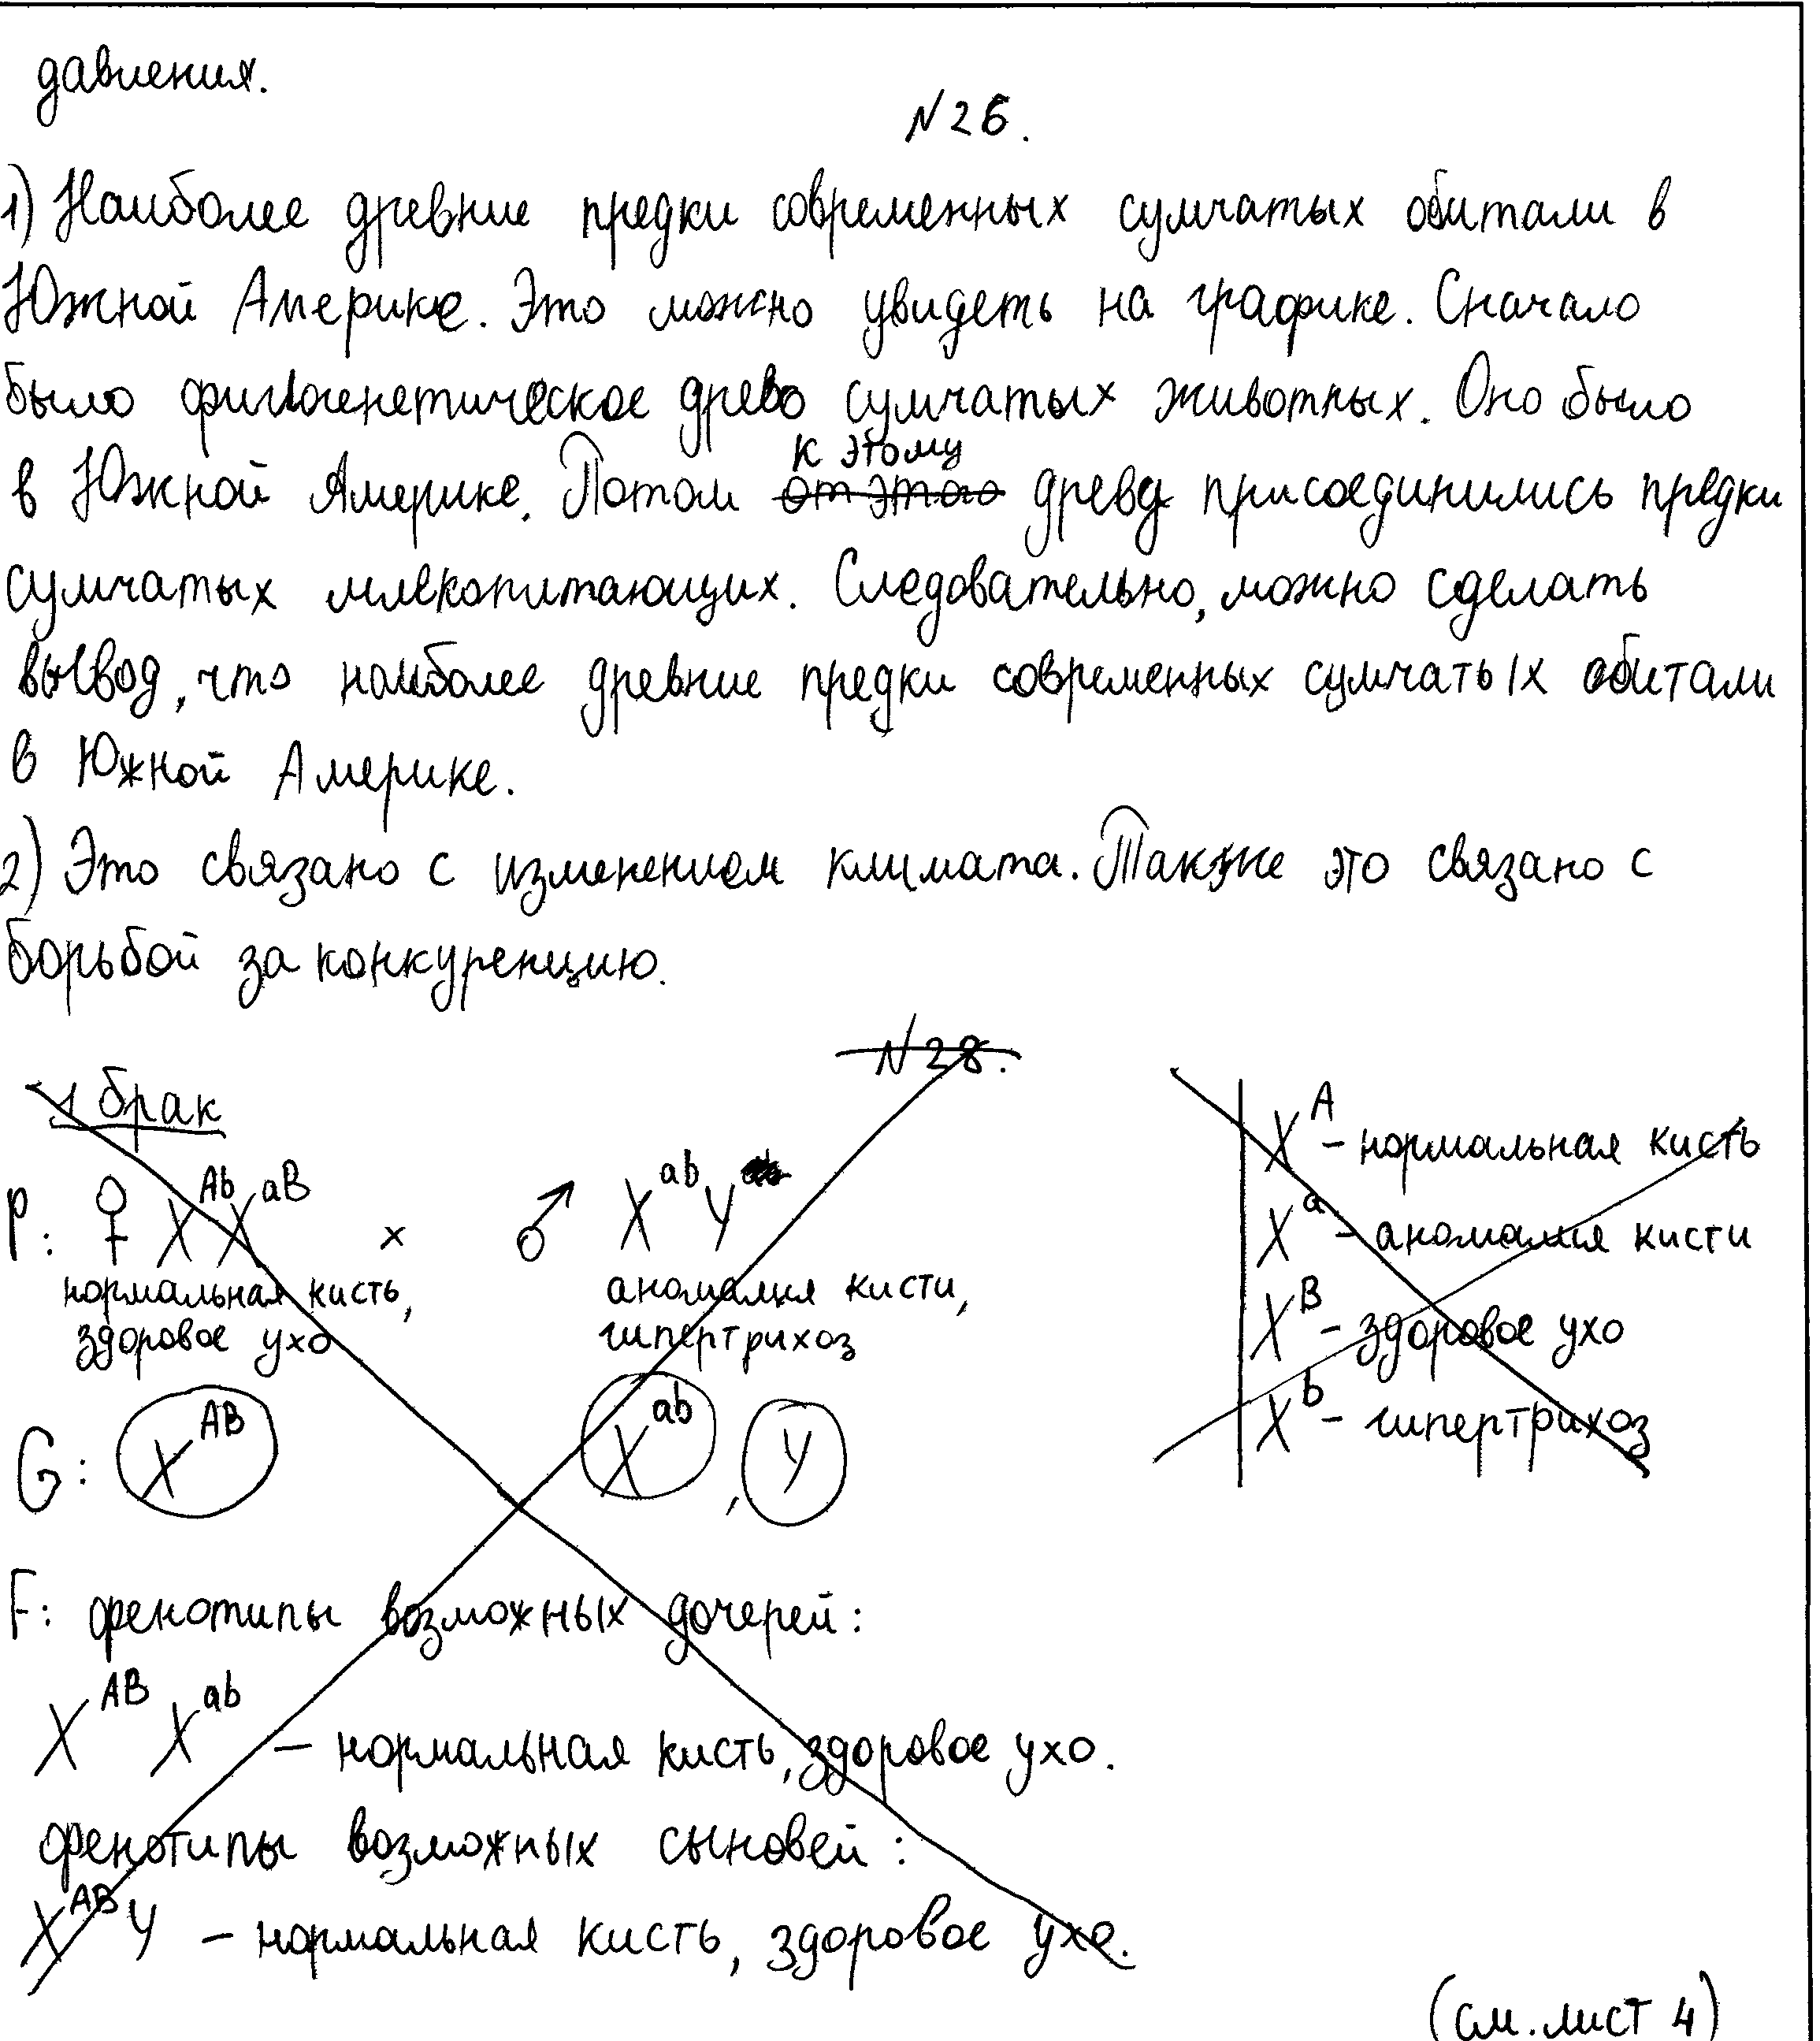 давления.
№26.
1) Наиболее древние предки современных сумчатых обитали в
Южной Америке. Это можно увидеть на графике. Сначало
было филогенетическое древо сумчатых животных. Оно было
к этому
в Южной Америке. Потом от этого древу присоединились предки
сумчатых млекопитающих. Следовательно, можно сделать
вывод, что наиболее древние предки современных сумчатых обитали
в Южной Америке.
2) Это связано с изменением климата. Также это связано с
борьбой за конкуренцию.
№28.
1 брак
P: ♀ X^Ab X^aB × ♂ X^ab Y
нормальная кисть, аномалия кисти,
здоровое ухо гипертрихоз
G: X^AB X^ab, Y
F: фенотипы возможных дочерей:
X^AB X^ab – нормальная кисть, здоровое ухо.
фенотипы возможных сыновей:
X^AB Y – нормальная кисть, здоровое ухо.
X^A – нормальная кисть
X^a – аномалия кисти
X^B – здоровое ухо
X^b – гипертрихоз
(см. лист 4)